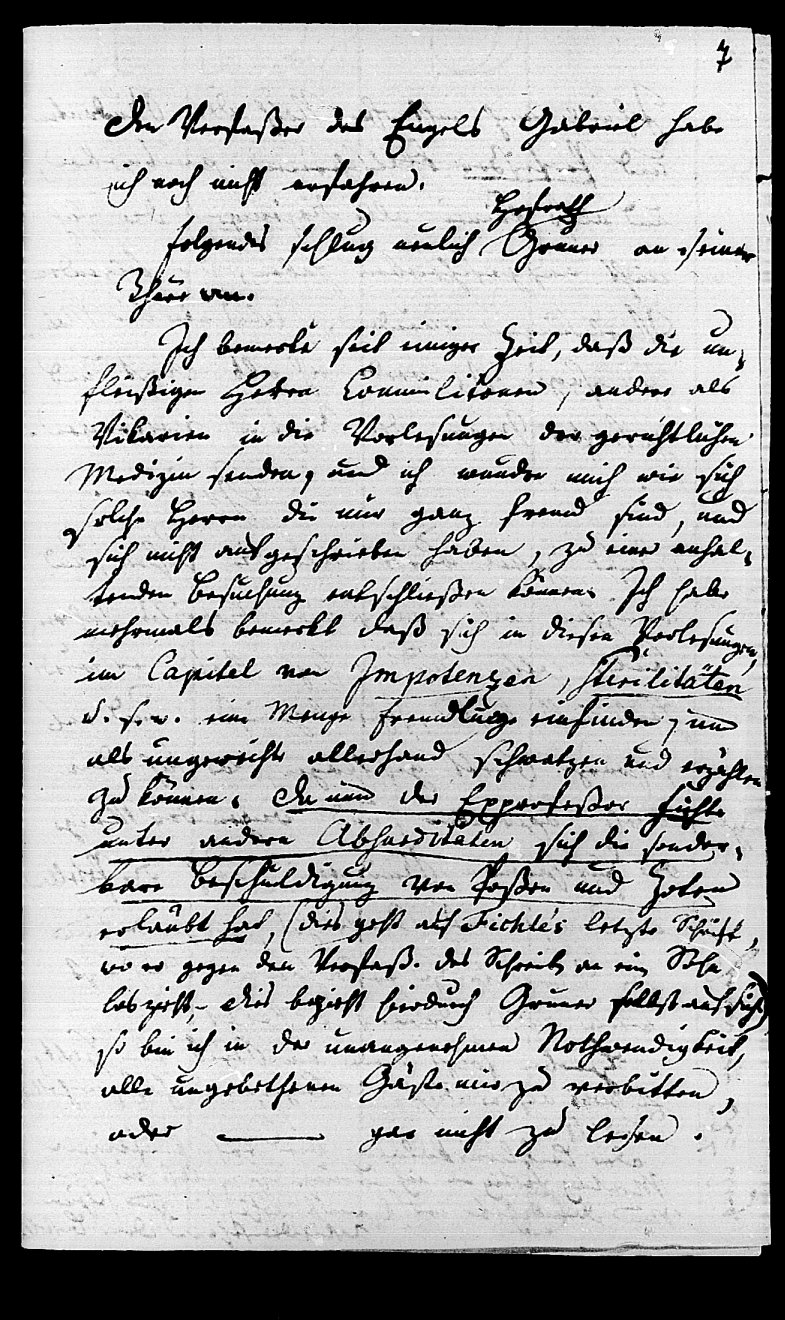 7
Den Verfaßer des Engels Gabriel habe
ich noch nicht erfahren.
Hofrath
folgendes schlug neulich Gruner an seiner
Thüre an.
Ich bemerke seit einiger Zeit, daß die un-
fleißigen Herren Commilitonen, andere als
Vikarien in die Vorlesungen der gerichtlichen
Medizin senden, und ich wundre mich wie sich
solche Herrn die mir ganz fremd sind, und
sich nicht aufgeschrieben haben, zu einer anhal-
tenden Besuchung entschließen können. Ich habe
mehrmals bemerkt daß sich in diesen Vorlesungen,
im Capitel von Impotenzen, Sterilitäten
u. s. w. eine Menge Fremdlinge einfinden, um
als ungeweihte allerhand schwatzen und erzählen
zu können. Da nun der Exprofeßor Fichte
unter andern Absurditäten sich die sonder-
bare Beschuldigung von Poßen und Zoten
erlaubt hat, (dies geht auf Fichte's letzte Schrift,
wo er gegen den Verfaß. des Schreib. an ein Sohn
loszieht, – dies bezieht hierdurch Gruner selbst auf sich)
so bin ich in der unangenehmen Nothwendigkeit,
alle ungebethenen Gäste mir zu verbitten,
oder ——— gar nicht zu lesen.